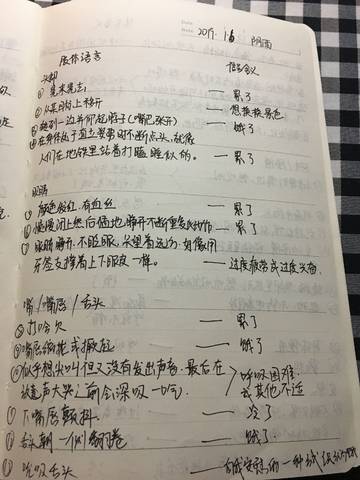 Date
Date 2017. 1.6 阴雨
肢体语言 信号含义
头部
① 晃来晃去; —— 累了
② 从某物上移开 —— 想换换景色
③ 转到一边并仰起脖子(嘴巴张开) —— 饿了
④ 在身体处于直立姿势时不断点头,就像
人们在地铁里站着打瞌睡似的。 —— 累了
眼睛
① 颜色发红,有血丝 —— 累了
② 慢慢闭上然后倏地睁开不断重复此动作 —— 累了
③ 眼睛睁开,不眨眼,呆望着远方,如像用
牙签支撑着上下眼皮一样。 —— 过度疲劳或过度兴奋
嘴/嘴唇/舌头
① 打哈欠 —— 累了
② 嘴唇 或撅起 —— 饿了
③ 似乎想尖叫但又没有发出声音,最后在
放声大哭之前会深吸一口气 呼吸困难
或其他不适
④ 下嘴唇颤抖 —— 冷了
⑤ 舌头朝一侧翻卷 —— 饿了
⑥ 吮吸舌头 —— 的一种